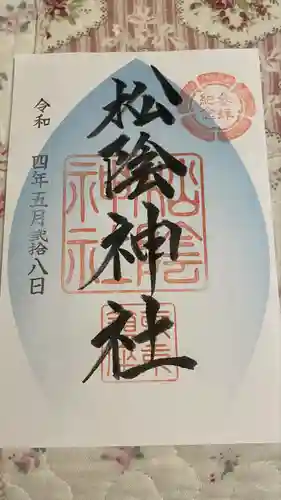 参拝
記念
松陰神社
松陰
神社
令和 四年五月弐拾八日